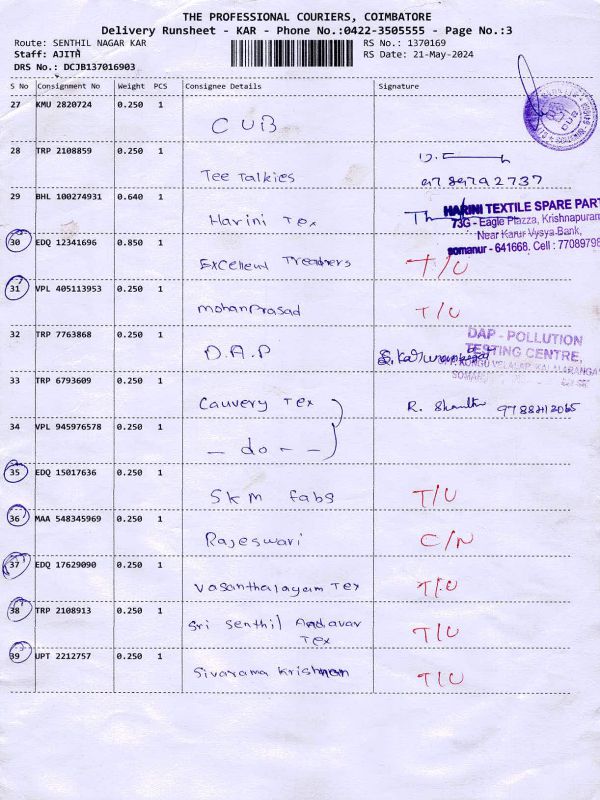 THE PROFESSIONAL COURIERS, COIMBATORE
Delivery Runsheet - KAR - Phone No.:0422-3505555 - Page No.:3
Route: SENTHIL NAGAR KAR
Staff: AJITH
DRS No.: DCJB137016903
RS No.: 1370169
RS Date: 21-May-2024
S No Consignment No Weight PCS Consignee Details Signature
27 KMU 2820724 0.250 1
CUB
28 TRP 2108859 0.250 1
Tee Talkies
29 BHL 100274931 0.640 1
Harini Tex
HARINI TEXTILE SPARE PART
73G - Eagle Plazza, Krishnapuram
Near Karur Vysya Bank,
somanur - 641668. Cell : 77089798
30 EDQ 12341696 0.850 1
Excellent T/U
31 VPL 405113953 0.250 1
mohanprasad T/U
32 TRP 7763868 0.250 1
D.A.P
DAP - POLLUTION
TESTING CENTRE,
33 TRP 6793609 0.250 1
Cauvery Tex R.
34 VPL 945976578 0.250 1
- do - -
35 EDQ 15017636 0.250 1
SKM fabs T/U
36 MAA 548345969 0.250 1
Rajeswari C/N
37 EDQ 17629090 0.250 1
Vasanthalayam Tex T/U
38 TRP 2108913 0.250 1
Sri Senthil Andavar
Tex T/U
39 UPT 2212757 0.250 1
Sivarama Krishnan T/U